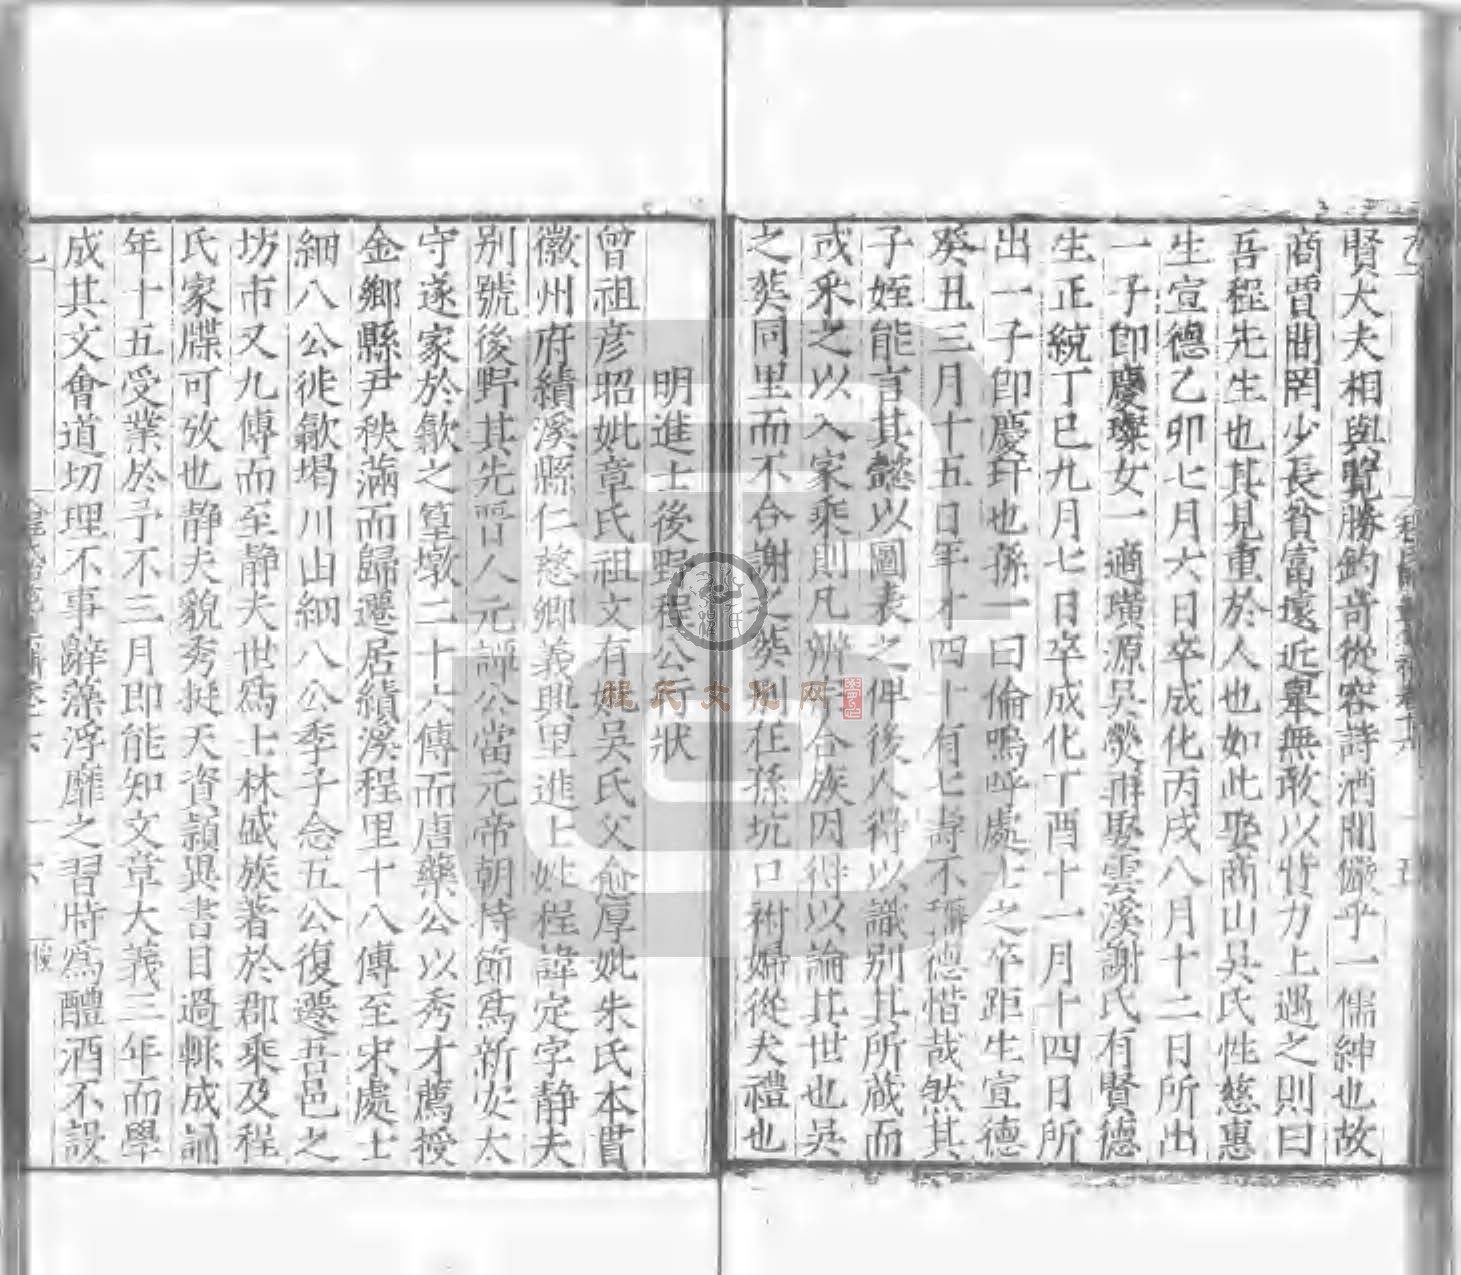 賢大夫相與覽勝釣奇從容詩酒閒儼乎一儒紳也故
商賈間罔少長貧富遠近卑無敢以貲力上遇之則曰
吾程先生也其見重於人也如此娶商山吳氏性慈惠
生宣德乙卯七月六日卒成化丙戌八月十二日所出
一子卽慶璨女一適璜源吳熒繼娶雲溪謝氏有賢德
生正統丁巳九月七日卒成化丁酉十一月十四日所
出一子卽慶玕也孫一曰倫嗚呼處士之卒距生宣德
癸丑三月十五日年才四十有七壽不稱德惜哉然其
子姪能言其懿以圖表之俾後人得以識別其所蔵而
或采之以入家乘則凡 合族因得以論其世也吳
之葬同里而不合謝之葬則在孫坑口祔婦從夫禮也
明進士後野程公行狀
曾祖彦昭妣章氏祖文有妣吳氏父愈厚妣朱氏本貫
徽州府績溪縣仁慈鄉義興里進士姓程諱定字静夫
别號後野其先晉人元譚公當元帝朝持節爲新安太
守遂家於歙之篁墩二十六傳而唐藥公以秀才薦授
金鄉縣尹秩滿而歸遷居績溪程里十八傳至宋處士
細八公徙歙堨川山細八公季子念五公復遷吾邑之
坊市又九傳而至静夫世爲士林盛族著於郡乘及程
氏家牒可攷也静夫貌秀挺天資頴異書目過輒成誦
年十五受業於予不三月即能知文章大義三年而學
成其文會道切理不事辭藻浮靡之習時爲醴酒不設
程氏文化网